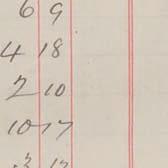 6 9
4 18
2 10
10 17
3 13